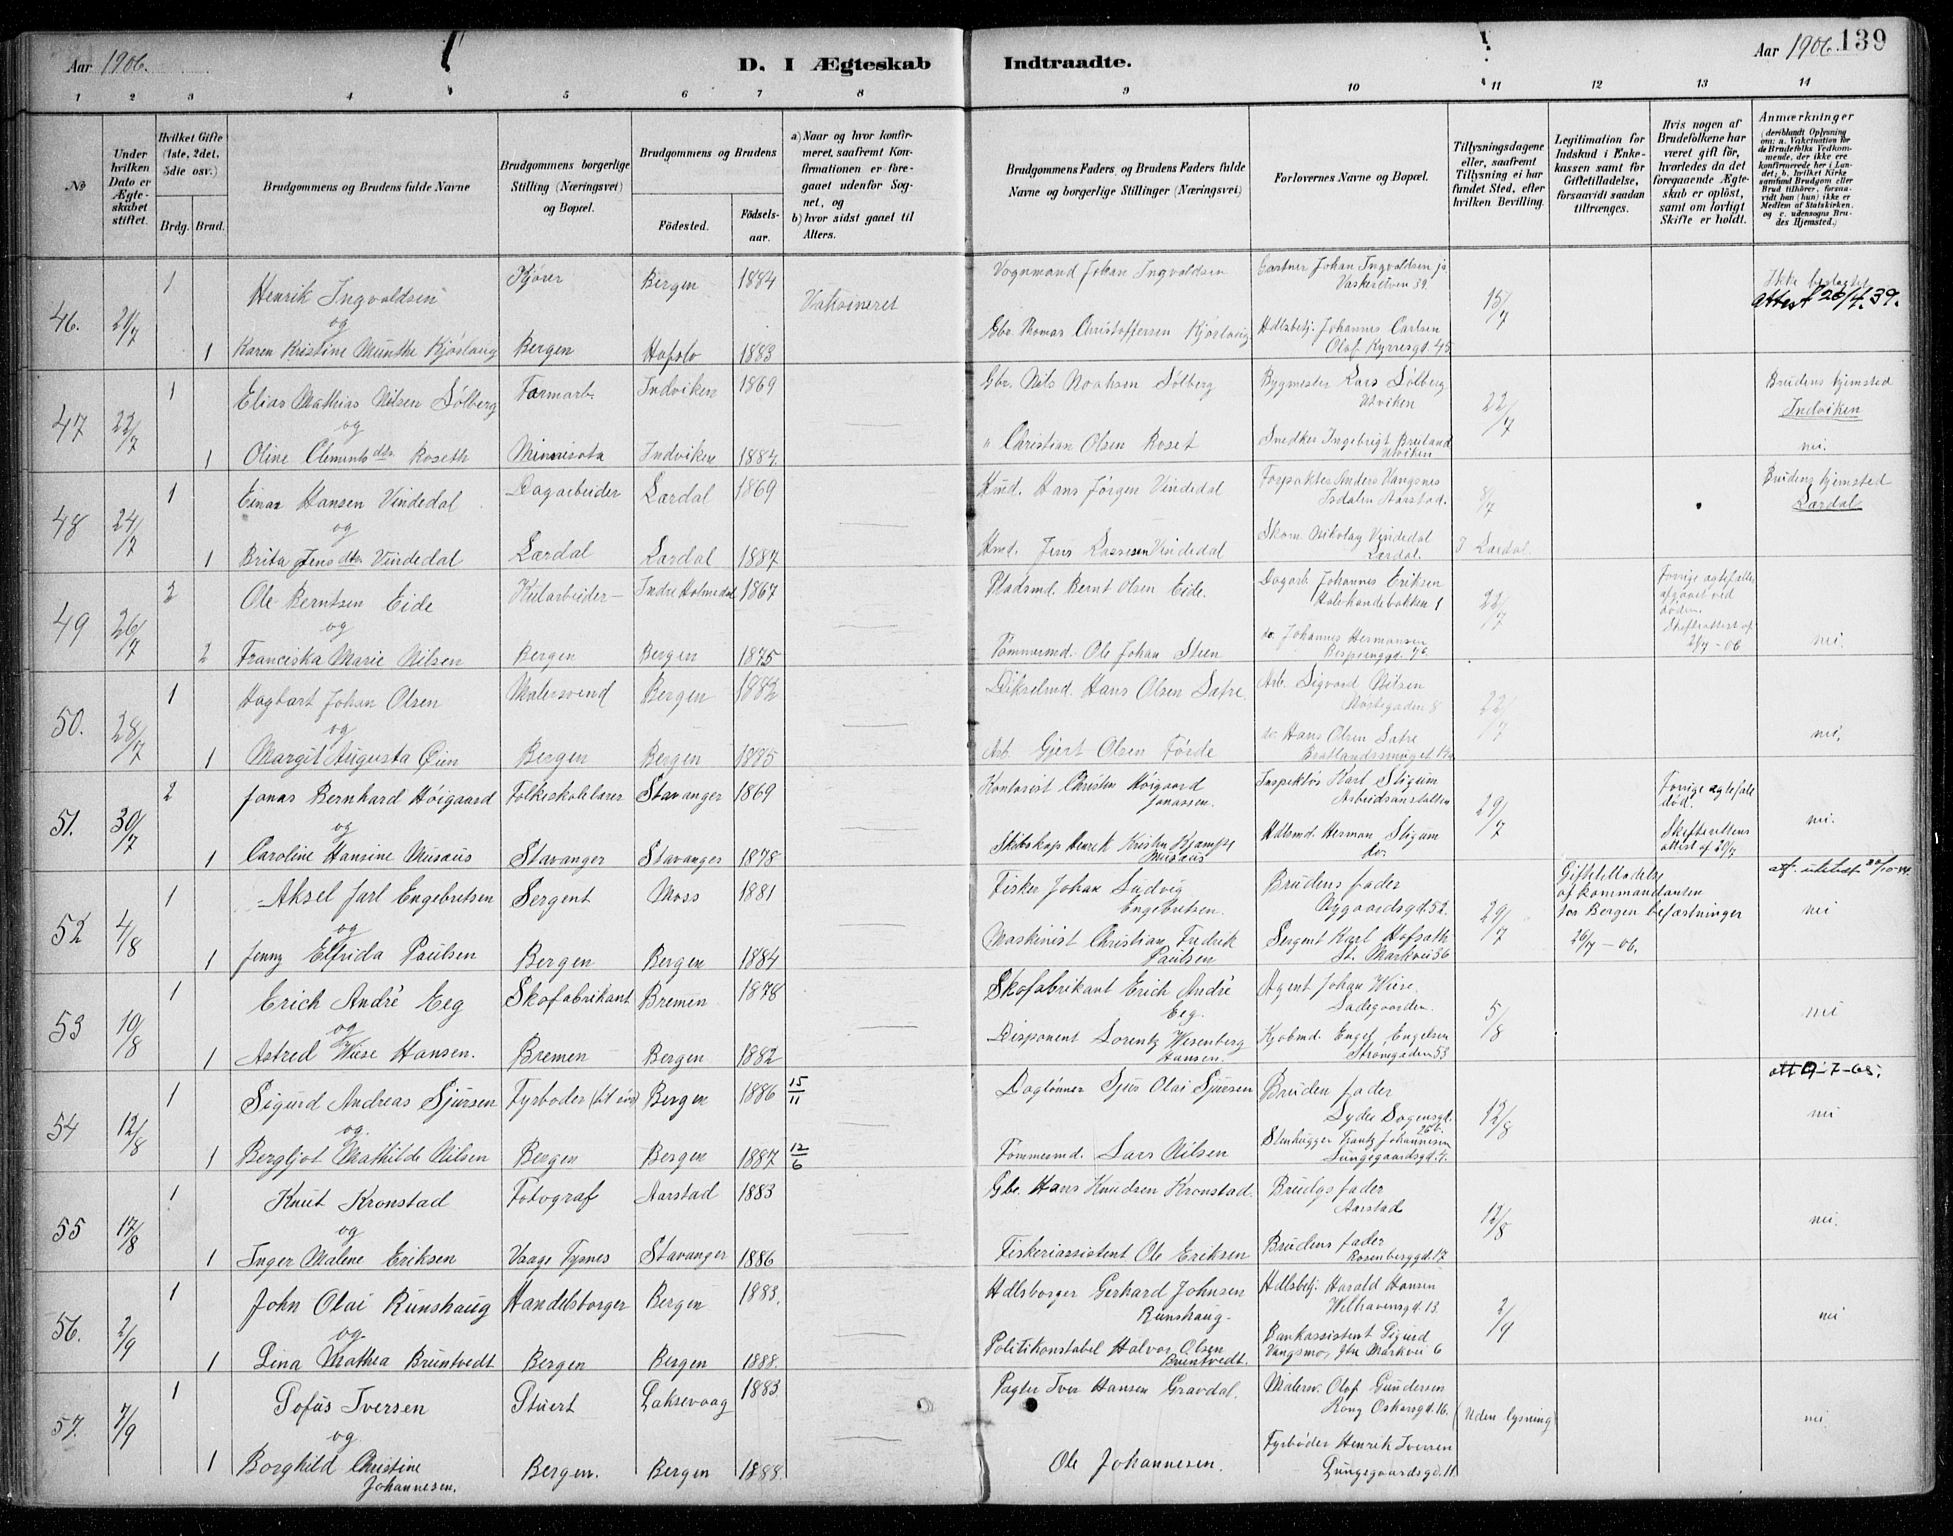 Aar 1906.
D. I Ægteskab Indtraadte.
Aar 1906. 139
1 2 3 4 5 6 7 8 9 10 11 12 13 14
No
Under hvilken Dato er Ægteskabet stiftet.
Hvilket Gifte (1ste, 2det, 3die osv.)
Brdg. Brud.
Brudgommens og Brudens fulde Navne
Brudgommens borgerlige Stilling (Næringsvei) og Bopæl.
Brudgommens og Brudens
Fødested.
Fødselsaar.
a) Naar og hvor konfirmeret, saafremt Konfirmationen er foregaaet udenfor Sognet, og
b) hvor sidst gaaet til Alters.
Brudgommens Faders, og Brudens Faders fulde Navne og borgerlige Stillinger (Næringsvei)
Forlovernes Navne og Bopæl.
Tillysningsdagene eller, saafremt Tillysning ei har fundet Sted, efter hvilken Bevilling.
Legitimation for Indskud i Enkekassen samt for Giftetilladelse, forsaavidt saadan tiltrænges.
Hvis nogen af Brudefolkene har været gift før, hvorledes da det foregaaende Ægteskab er opløst, samt om lovligt Skifte er holdt.
Anmærkninger
46. 21/7 1 Henrik Ingvaldsen Kjører Bergen 1884 Vaksineret Vognmand Johan Ingvaldsen Gartner Johan Ingvaldsen jr. Vaskerelven 39. 15/7 Ikke beslagtet attest 26/4.39.
og
1 Karen Kristine Munthe Kjøslaug Bergen Hafslo 1883 Gbr. Thomas Christoffersen Kjøslaug Hdlsbetj. Johannes Carlsen Olaf Kyrresgd. 45
47 22/7 1 Elias Mathias Nilsen Sølberg Farmarb. Indviken 1869 Gbr. Nils Noahsen Sølberg Bygmester Lars Sølberg Utviken 22/7 Brudens hjemsted Indviken
og
1 Oline Clementsdtr. Roseth Minnisota Indviken 1884. " Christian Olsen Roset Snedker Ingebrigt Breiland Utviken nei.
48 24/7 1 Einar Hansen Vindedal Dagarbeider Lærdal 1869 Hmd. Hans Jørgen Vindedal Forpakter Anders Vangsnes Isdalen Aarstad. 8/7 Brudens hjemsted Lærdal
og
1 Brita Jensdtr. Vindedal Lærdal Lærdal 1887 Hmd. Jens Lassesen Vindedal Skom. Nikolay Vindedal Lærdal. I Lærdal.
49 26/7 2 Ole Berntsen Eide Kularbeider Indre Holmedal 1867 Pladsmd. Bernt Olsen Eide. Dagarb. Johannes Eriksen 1 22/7 Forrige ægtefæller afgaaet ved døden. Skifteattest af 2/7-06
og
2 Franciska Marie Nilsen Bergen Bergen 1875 Tømmermd. Ole Johan Steen do. Johannes Hermansen nei.
50. 28/7 1 Hagbart Johan Olsen Malersvend Bergen 1882 Hans Olsen Sætre. Arb. Sigvard Nilsen 8 22/7
og
1 Margit Augusta Øien Bergen Bergen 1885 Arb. Gjert Olsen Førde do. Hans Olsen Sætre nei.
51. 30/7 2 Jonas Bernhard Høigaard Folkeskolelærer Stavanger 1869 Kontorist Christen Høigaard Jonassen. Inspektør Karl Stigum Arbeidsanstalten 29/7 Forrige ægtefælle død. Skifterettens attest af 20/7 nei.
og
1 Caroline Hansine Musæus Stavanger Stavanger 1878 Skibskap. Henrik Kristen Kjampe Musæus Hdlsmd. Herman Stigum do.
52 4/8 1 Aksel Jarl Engebretsen Sergent Moss 1881 Fisker Johan Ludvig Engebretsen. Brudens fader Nygaardsgd. 52. 29/7 Giftetilladelse af kommandanten for Bergen befæstninger 26/7-06. nei
og
1 Jenny Elfrida Paulsen Bergen Bergen 1884 Maskinist Christian Fredrik Paulsen Sergent Karl Hofsath St. Markvei 56
53 10/8 1 Erich André Eeg Skofabrikant Bremen 1878 Skofabrikant Erich André Eeg. Agent Johan Wiese Ladegaarden. 5/8 nei
og
1 Astred Wiese Hansen. Bremen Bergen 1882 Disponent Lorentz Wesenberg Hansen. Kjøbmd. Engel Engelsen Strømgaden 53.
54 12/8 1 Sigurd Andreas Sjursen Fyrbøder (til sjøs) Bergen 1886 15/11 Daglønner Sjur Olai Sjursen Bruden fader Lyder Sagensgd. 25b. 12/8 att 9-7-65. nei
og
1 Bergljot Mathilde Nilsen Bergen Bergen 1887 12/6 Tømmermd. Lars Nilsen Stenhugger Frantz Johannesen Lungegaardsgd. 4.
55 17/8 1 Knut Kronstad Fotograf Aarstad 1883 Gbr. Hans Knudsen Kronstad. Brudgs fader Aarstad 12/8 nei.
og
1 Inger Malene Eriksen Vaage Tysnes Stavanger 1886 Fiskeriassistent Ole Eriksen Brudens fader Rosenberggd. 17
56. 2/9 1 John Olai Runshaug Handelsborger Bergen 1883. Hdlsborger Gerhard Johnsen Runshaug. Hdlsbetj. Harald Hansen Welhavensgd. 13. 2/9 nei
og
1 Lina Mathea Bruntvedt Bergen Bergen 1888. Politikonstabel Halvor Olsen Bruntvedt. Bankassistent Sigurd Vangsmo, Markvei 6
57. 7/9 1 Sofus Iversen Stuert Laksevaag 1883 Pagter Iver Hansen Gravdal. Malerm. Olof Gundersen Kong Oskarsgd. 16. (Uden lysning) nei.
og
1 Borghild Christine Johannesen. Bergen. Bergen 1888. Ole Johannesen. Fyrbøder Henrik Iversen Lungegaardsgd. 11.